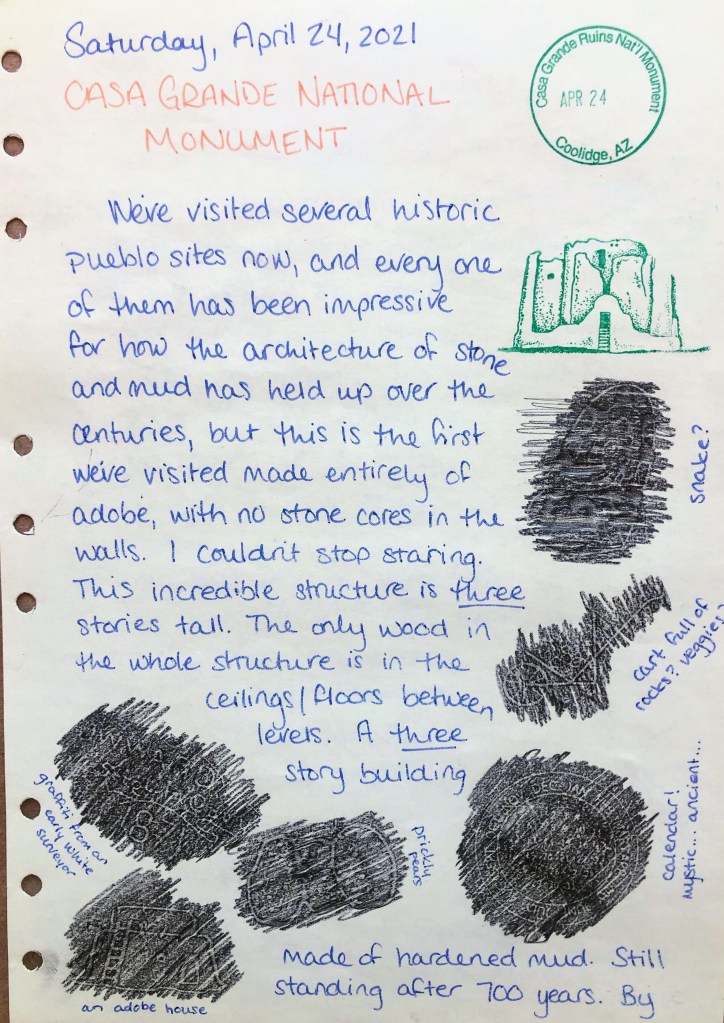 Saturday, April 24, 2021
CASA GRANDE NATIONAL
MONUMENT
Casa Grande Ruins Nat'l Monument
APR 24
Coolidge, AZ
We've visited several historic
pueblo sites now, and every one
of them has been impressive
for how the architecture of stone
and mud has held up over the
centuries, but this is the first
we've visited made entirely of
adobe, with no stone cores in the
walls. I couldn't stop staring.
This incredible structure is three
stories tall. The only wood in
the whole structure is in the
ceilings/floors between
levels. A three
story building
snake?
cart full of
rocks? veggies
graffiti from an
early white
surveyor
prickly
pears
DEC JAN
calendar!
mystic... ancient...
an adobe house
made of hardened mud. Still
standing after 700 years. By